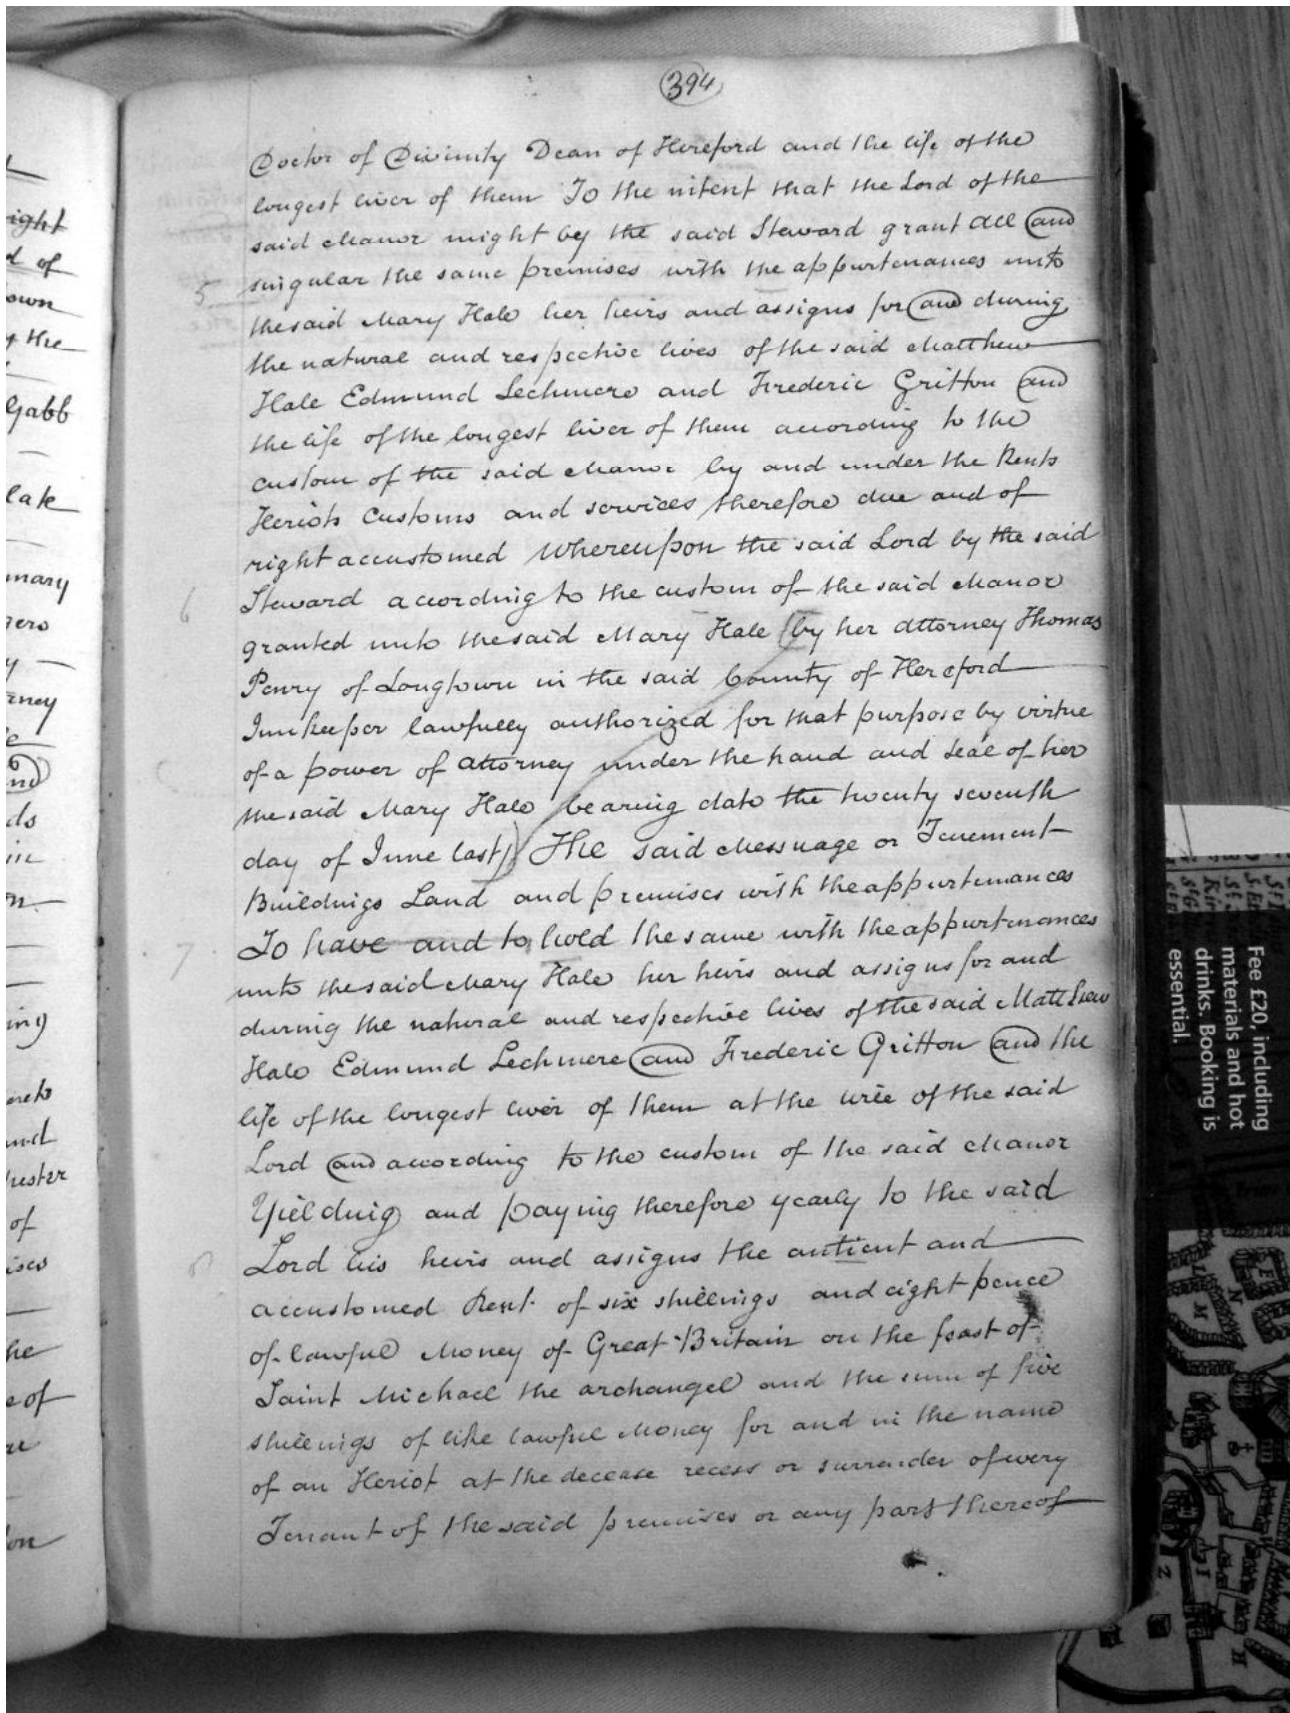 394
Doctor of Divinity Dean of Hereford and the life of the
longest liver of them To the intent that the Lord of the
said Manor might by the said Steward grant all and
singular the same premises with the appurtenances unto
5
the said Mary Hale her heirs and assigns for and during
the natural and respective lives of the said Matthew
Hale Edmund Lechmere and Frederic Gritton and
the life of the longest liver of them according to the
custom of the said Manor by and under the Rents
Heriots Customs and services therefore due and of
right accustomed Whereupon the said Lord by the said
6
Steward according to the custom of the said Manor
granted unto the said Mary Hale (by her attorney Thomas
Penry of Longtown in the said County of Hereford
Innkeeper lawfully authorized for that purpose by virtue
of a power of attorney under the hand and seal of her
the said Mary Hale bearing date the twenty seventh
day of June last) The said Messuage or Tenement
Buildings Land and premises with the appurtenances
7
To have and to hold the same with the appurtenances
unto the said Mary Hale her heirs and assigns for and
during the natural and respective lives of the said Matthew
Hale Edmund Lechmere and Frederic Gritton and the
life of the longest liver of them at the will of the said
Lord and according to the custom of the said Manor
Yielding and paying therefore yearly to the said
Lord his heirs and assigns the antient and
accustomed Rent of six shillings and eight pence
of lawful Money of Great Britain on the feast of
Saint Michael the archangel and the sum of five
shillings of like lawful Money for and in the name
of an Heriot at the decease recess or surrender of every
Tenant of the said premises or any part thereof
ight
of
own
the
Gabb
late
mary
of
he
of
Fee £20, including
materials and hot
drinks. Booking is
essential.